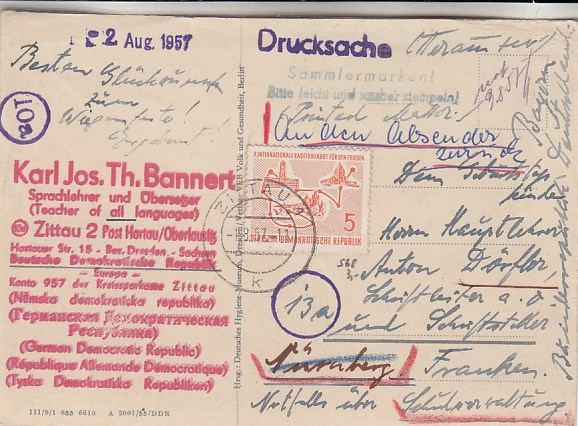 2 Aug. 1957
Drucksache
Sammlermarken!
Bitte leicht und sauber stempeln!
Printed Matter!
An den Absender
zurück
Besten Glückwunsch
zum
Wiegenfeste!
108
Karl Jos. Th. Bannert
Sprachlehrer und Übersetzer
(Teacher of all languages)
10a Zittau 2 Post Hartau/Oberlausitz
Hartauer Str. 15 - Bez. Dresden - Sachsen
Deutsche Demokratische Republik
- Europa -
Konto 957 der Kreissparkasse Zittau
(Německa demokraticka republika)
(Германская Демократическая
Республика)
(German Democratic Republic)
(République Allemande Démocratique)
(Tyska Demokratiska Republiken)
III/9/1 685 6610 A 3001/55/DDR
Hrsg.: Deutsches Hygiene-Museum, Dresden Verlag: VEB Volk und Gesundheit, Berlin
X. INTERNATIONALE RADFERNFAHRT FÜR DEN FRIEDEN
5
DEUTSCHE DEMOKRATISCHE REPUBLIK
ZITTAU 2
-1.8.57.-11
k
568
3,-
Herrn Hauptlehrer
Anton Dörfler,
Schriftleiter a. D.
und Schriftsteller
13a
Nürnberg
Franken
Notfalls über Schulverwaltung
Bayern
Deutschland